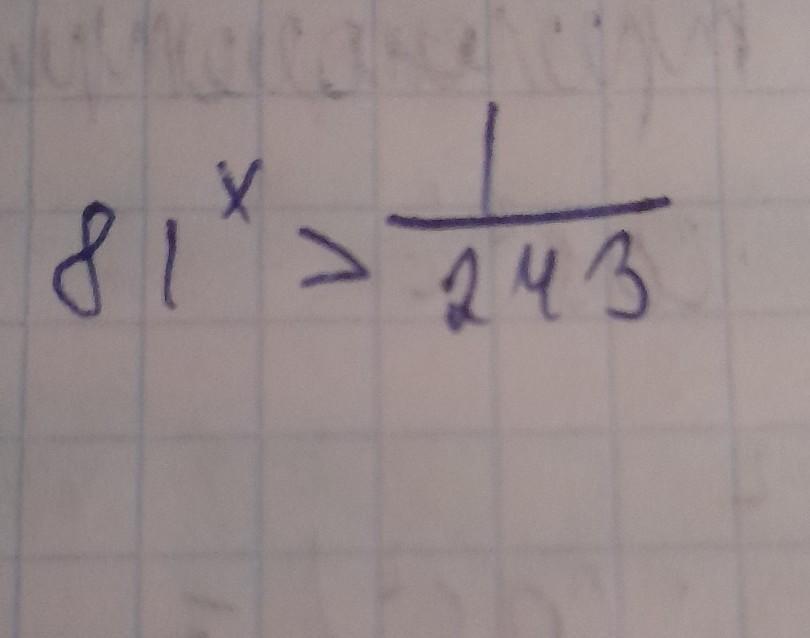 81^x > 1/243